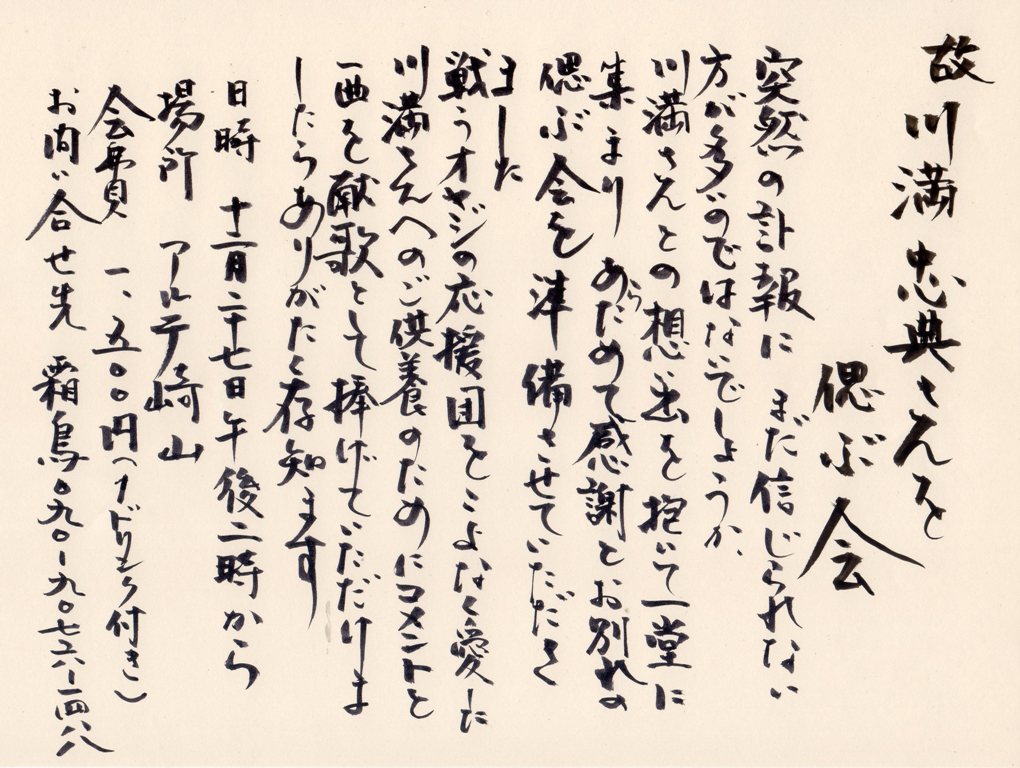 故 川満 忠典さんを
偲ぶ会
突然の訃報に まだ信じられない
方が多いのではないでしょうか、
川満さんとの想い出を抱いて一堂に
集まり あらためて感謝とお別れの
偲ぶ会を準備させていただき
ました
戦うオヤジの応援団をこよなく愛した
川満さんへのご供養のためにコメントと
一曲を献歌として捧げていただけま
したらありがたく存知ます
日時 十一月二十七日午後二時から
場所 アルテ崎山
会費 一、五〇〇円(1ドリンク付き)
お問い合せ先 霜鳥〇九〇-九〇七六-一四八八